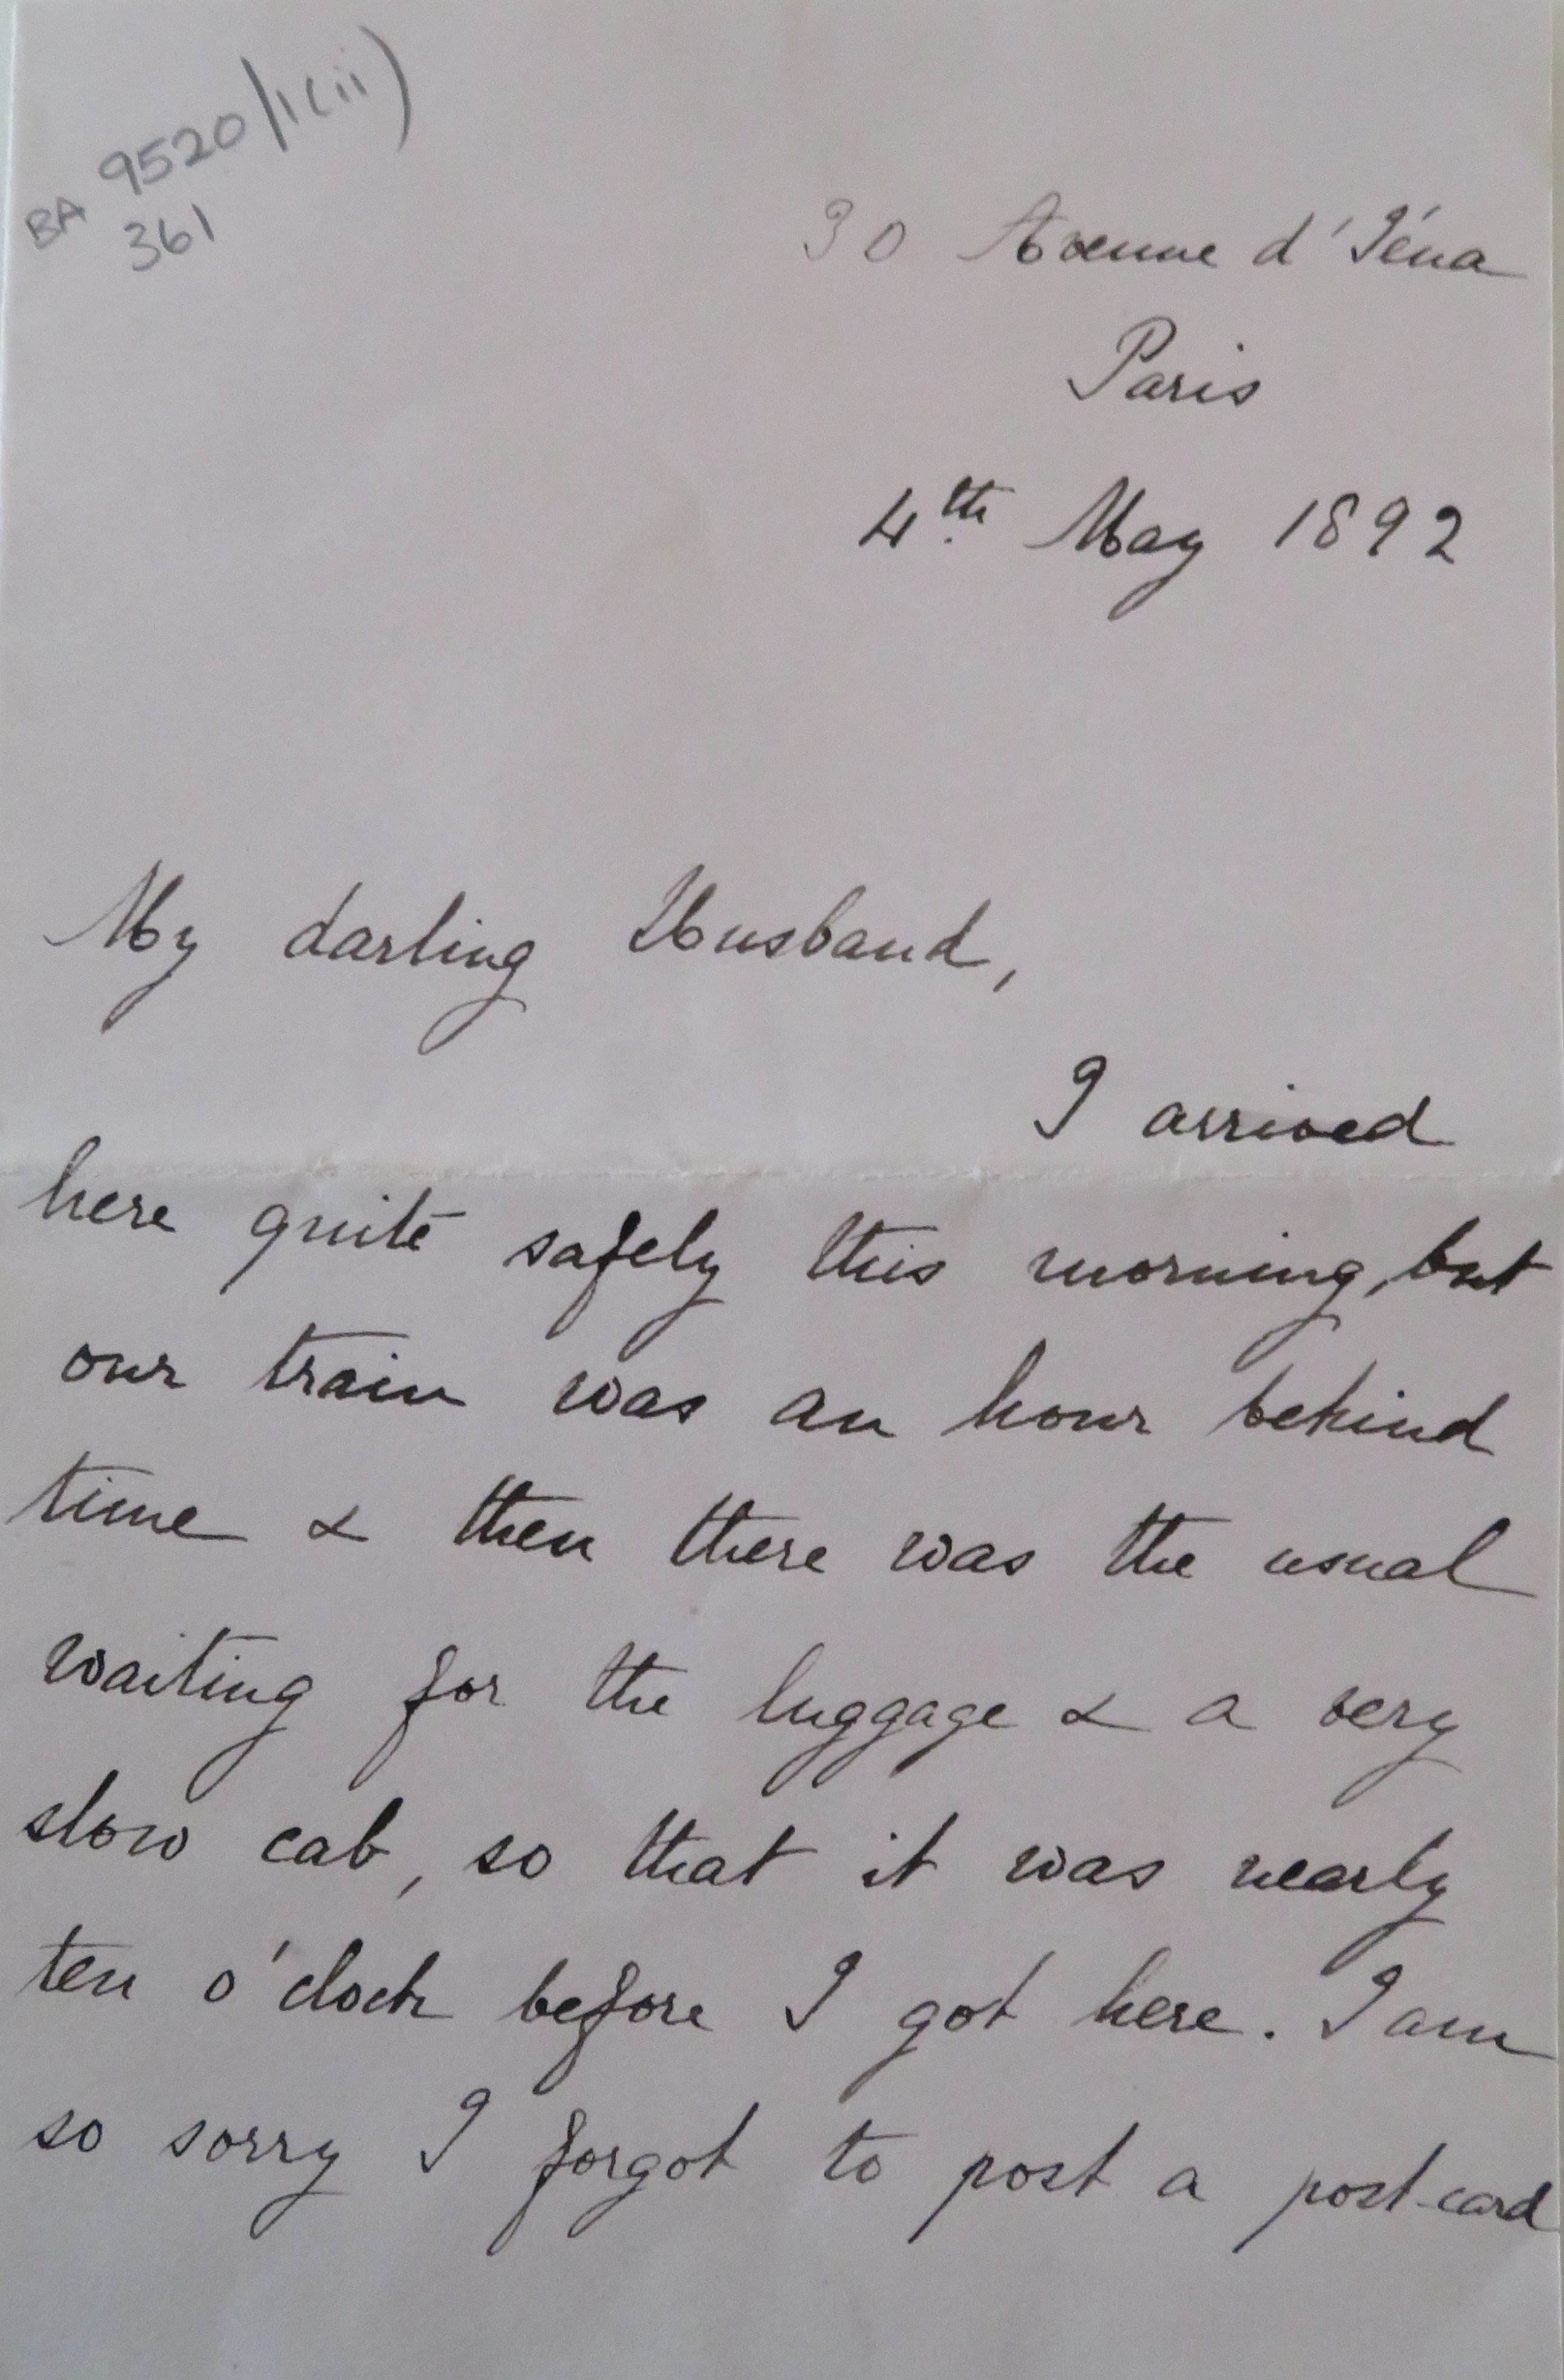 BA 9520/1(ii)
361
30 Avenue d'Iéna
Paris
4th May 1892
My darling Husband,
I arrived
here quite safely this morning, but
our train was an hour behind
time & then there was the usual
waiting for the luggage & a very
slow cab, so that it was nearly
ten o'clock before I got here. I am
so sorry I forgot to post a post-card